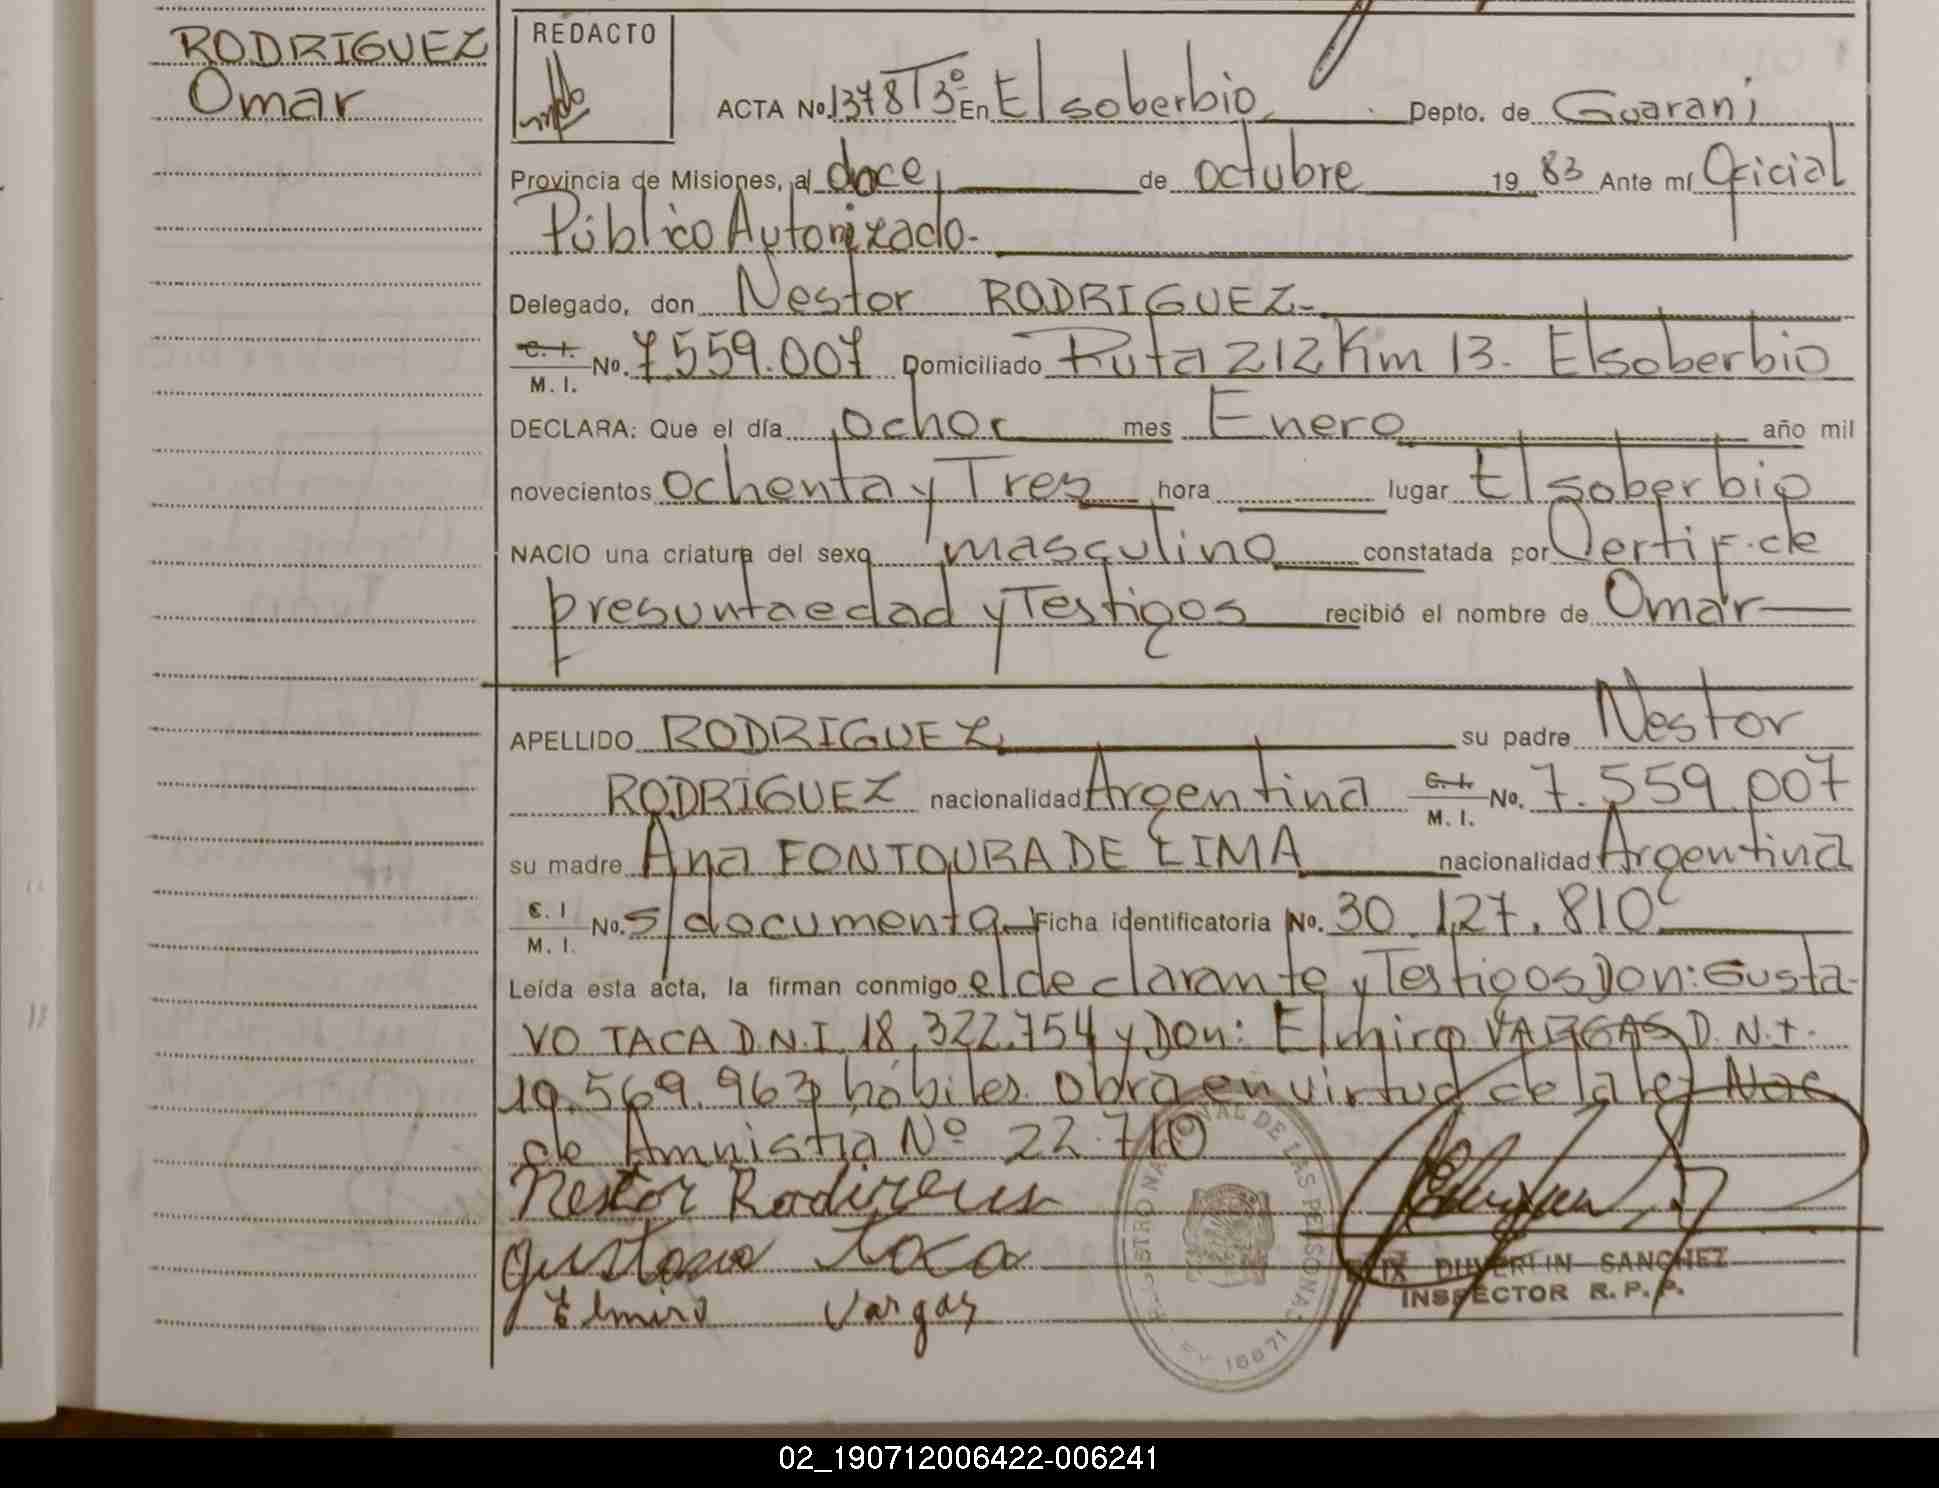 RODRIGUEZ
Omar
REDACTO
ACTA No. 1378 T 3º En El soberbio Depto. de Guarani
Provincia de Misiones, al doce de octubre 19 83 Ante mí Oficial
Público Autorizado.
Delegado, don Nestor RODRIGUEZ
C. I. M. I. No. 7.559.007 Domiciliado Ruta 212 Km 13. El soberbio
DECLARA: Que el día ocho mes Enero año mil
novecientos ochenta y Tres hora lugar El soberbio
NACIO una criatura del sexo masculino constatada por Certif. de
presunta edad y Testigos recibió el nombre de Omar
APELLIDO RODRIGUEZ su padre Nestor
RODRIGUEZ nacionalidad Argentina C. I. M. I. No. 7.559.007
su madre Ana FONTOURA DE LIMA nacionalidad Argentina
C. I M. I. No. s/documento Ficha identificatoria No. 30.127.810
Leída esta acta, la firman conmigo el declarante y Testigos Don: Gusta-
VO TACA D.N.I 18.322.754 y Don: Elmiro VARGAS D.N.I.
19.569.963 hábiles. Obra en virtud de la ley
de Amnistia Nº 22.710
Nestor
Gustavo Taca
Elmiro Vargas
DUVERLIN SANCHEZ
INSPECTOR R. P. P.
REGISTRO NACIONAL DE LAS PERSONAS
LEY 16671
02_190712006422-006241